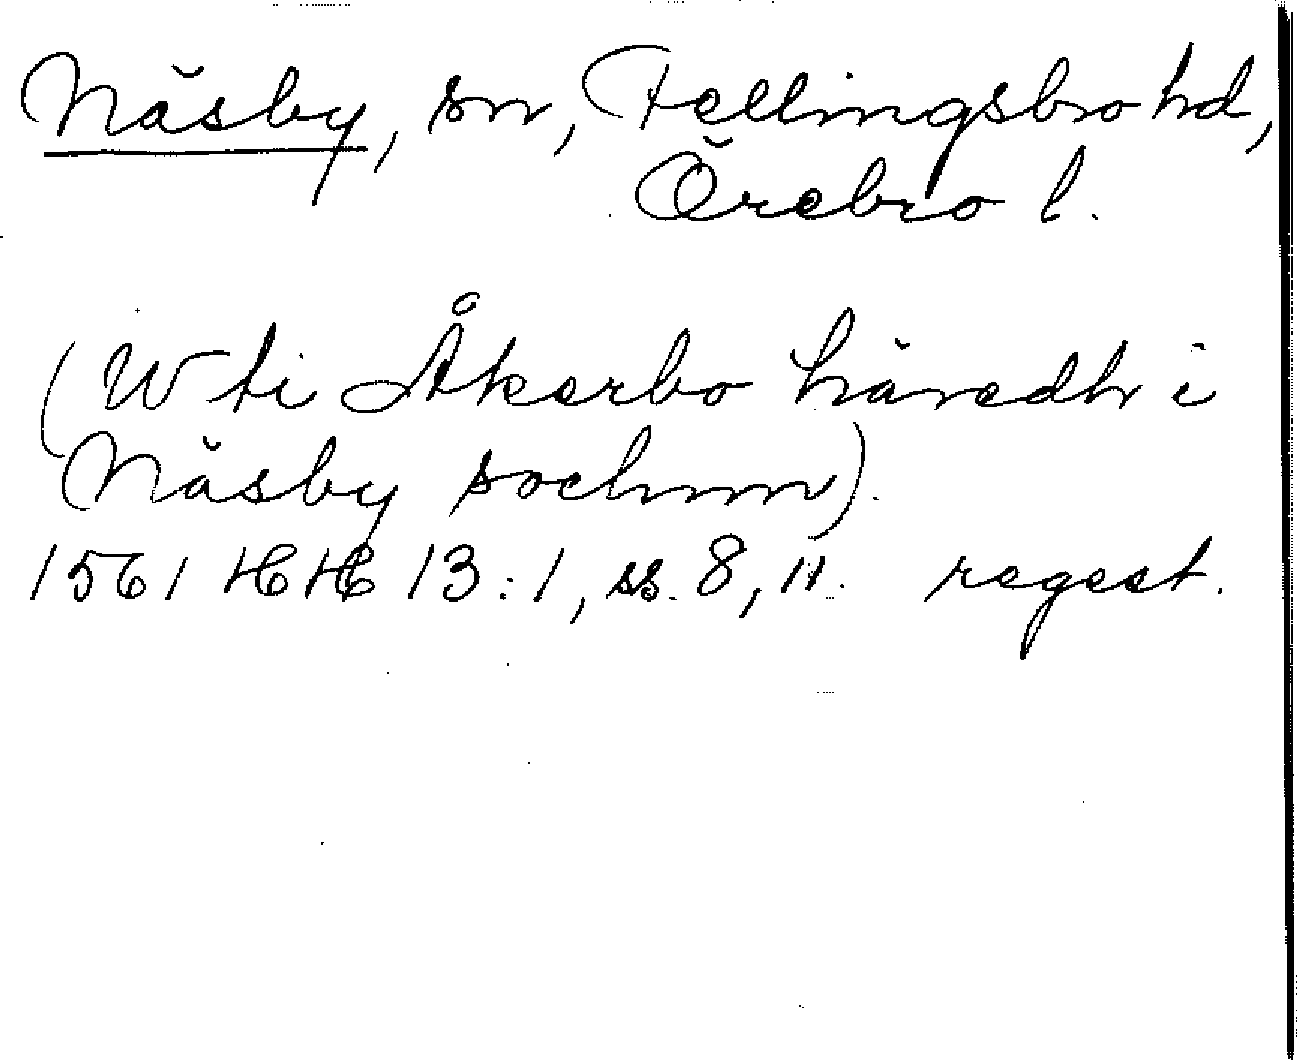 Näsby, sn, Fellingsbro hd,
Örebro l.
(Wti Åkerbo häredh i
Näsby sochnn).
1561 HH 13:1, ss. 8, 11. regest.